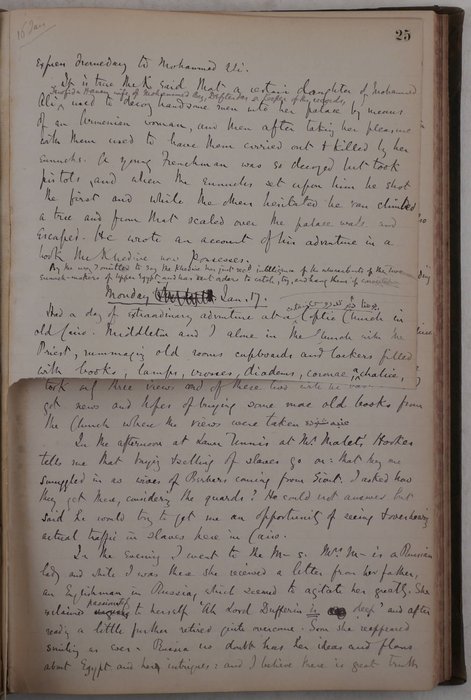 16 Jan
25
Express Tromeday to Mohammed Ali.
It is true the K. said that a certain daughter of Mohammed
wife of Mohammed Bey, Defterdar or keeper of the records,
Ali, used to decoy handsome men into her palace by means
of an Armenian woman, and then after taking her pleasure
with them used to have them carried out & killed by her
eunuchs. A young Frenchman was so decoyed but took
pistols, and when the eunuchs set upon him he shot
the first and while the others hesitated he ran climbed
a tree and from that scaled over the palace walls and
escaped. He wrote an account of his adventure in a
book the Khedive now possesses.
By the way I omitted to say the Khedive has just had intelligence of the whereabouts of the two
eunuch-makers of Upper Egypt, and has sent orders to catch, try, and hang them if convicted.
Monday Jan. 17.
Had a day of extraordinary adventure at a Coptic Church in
old Cairo. Middleton and I alone in the Church with the
Priest, rummaging old rooms cupboards and lockers filled
with books, lamps, crosses, diadems, coronae, a chalice,
took three views and of these two
got news and hopes of buying some more old books from
the Church where the views were taken
In the afternoon at Lawn Tennis at Mr Malet's, Hookes
tells me that buying & selling of slaves go on: that they are
smuggled in as wives of Berbers coming from Siout. I asked how
they get there, considering the guards? He could not answer but
said he would try to get me an opportunity of seeing & overhearing
actual traffic in slaves here in Cairo.
In the evening I went to the M—s. Mrs M— is a Russian
lady and while I was there she received a letter from her father,
an Englishman in Russia, which seemed to agitate her greatly. She
exclaimed passionately to herself 'Ah Lord Dufferin is deep' and after
reading a little further retired quite overcome. Soon she reappeared
smiling as ever. Russia no doubt has her ideas and plans
about Egypt and her intrigues: and I believe there is great truth